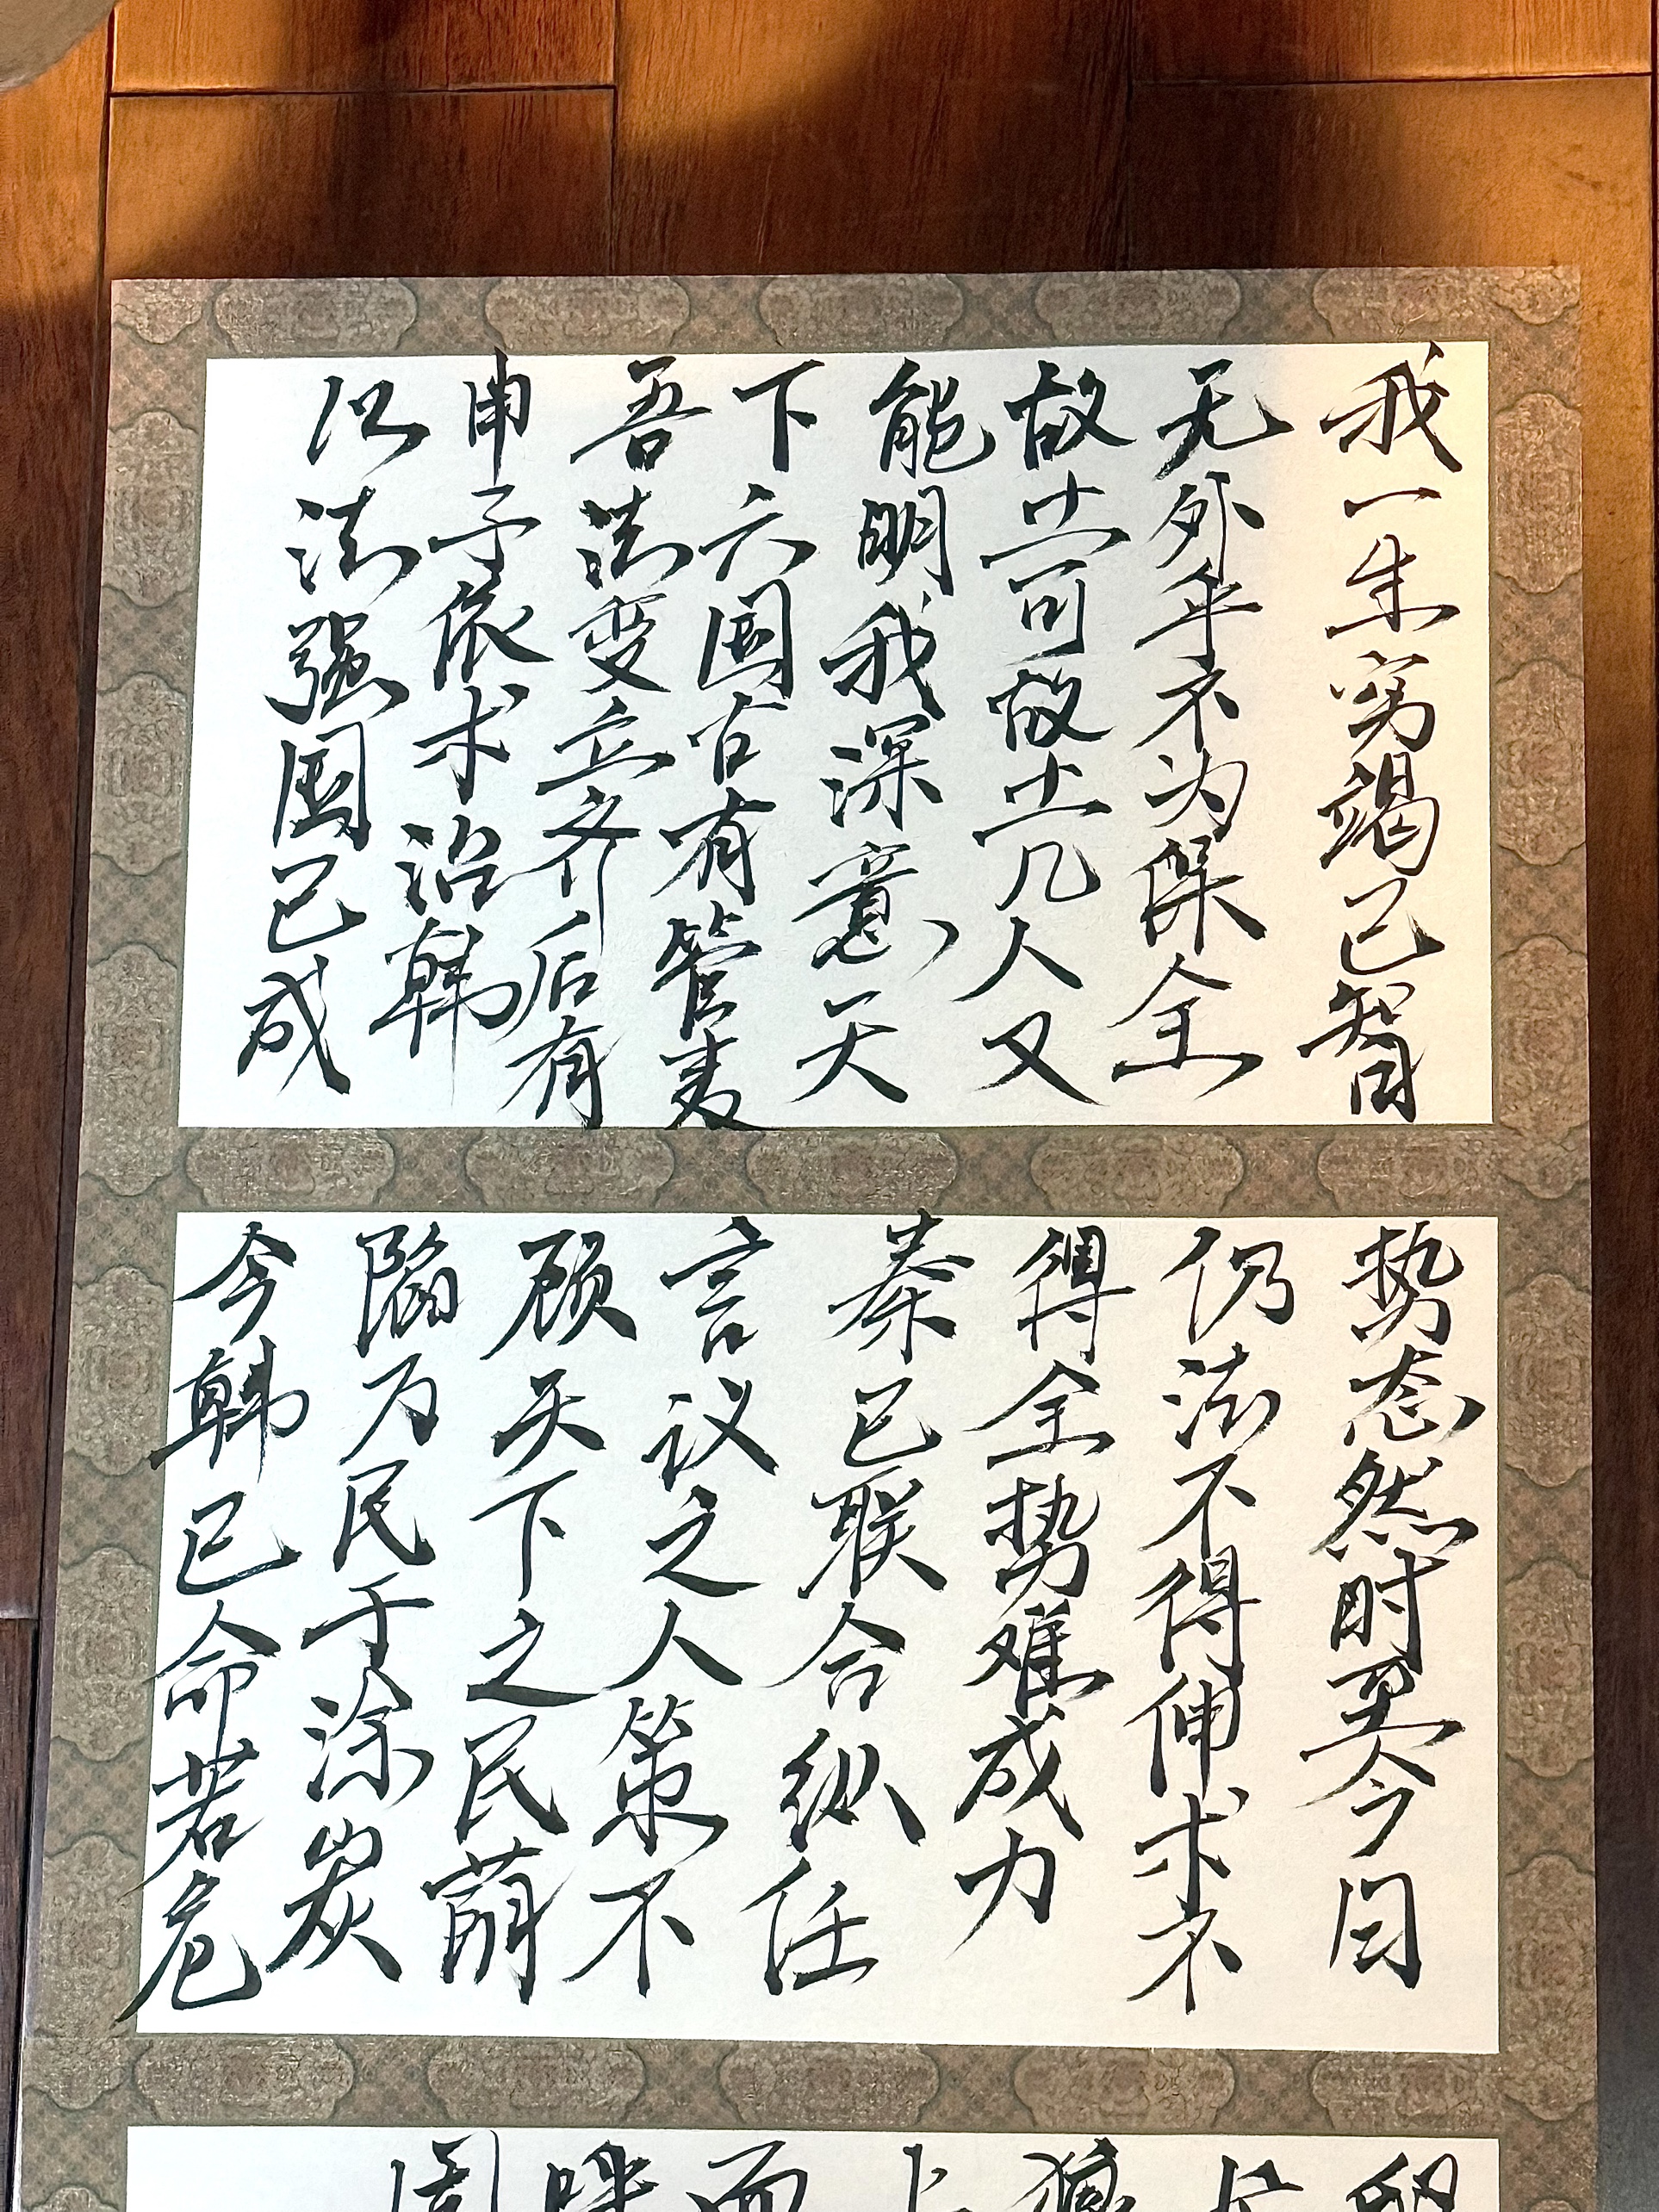 我一生穷竭己智
无外乎不为保全
故土可故土几人又
能明我深意天
下六国古有管夷
吾满变立齐后有
申子依术治韩
以法强国已成
势态然时至今日
仍法不得伸求不
得全势难成力
秦已联合纵任
言议之人策不
顾天下之民萌
陷万民于涂炭
今韩已命若危